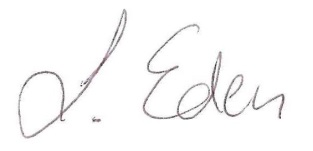 L. Eden